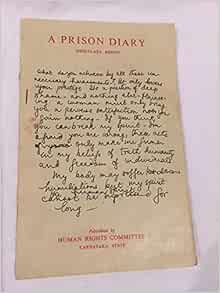 A PRISON DIARY
SNEHALATA REDDY
What do you achieve by all these un-
necessary harassments? It only lowers
your prestige. It's a poison of deep
shame — and nothing else. Harass-
ing a woman must only give
you a perverse satisfaction. You'll
gain nothing. If you think
you can break my spirit — I'm
afraid you are wrong. These acts
of yours only make me firmer
in my beliefs of truth, humanity
and freedom of individuals
My body may suffer
humiliations but my spirit
cannot be for
long —
Published by
HUMAN RIGHTS COMMITTEE
KARNATAKA STATE